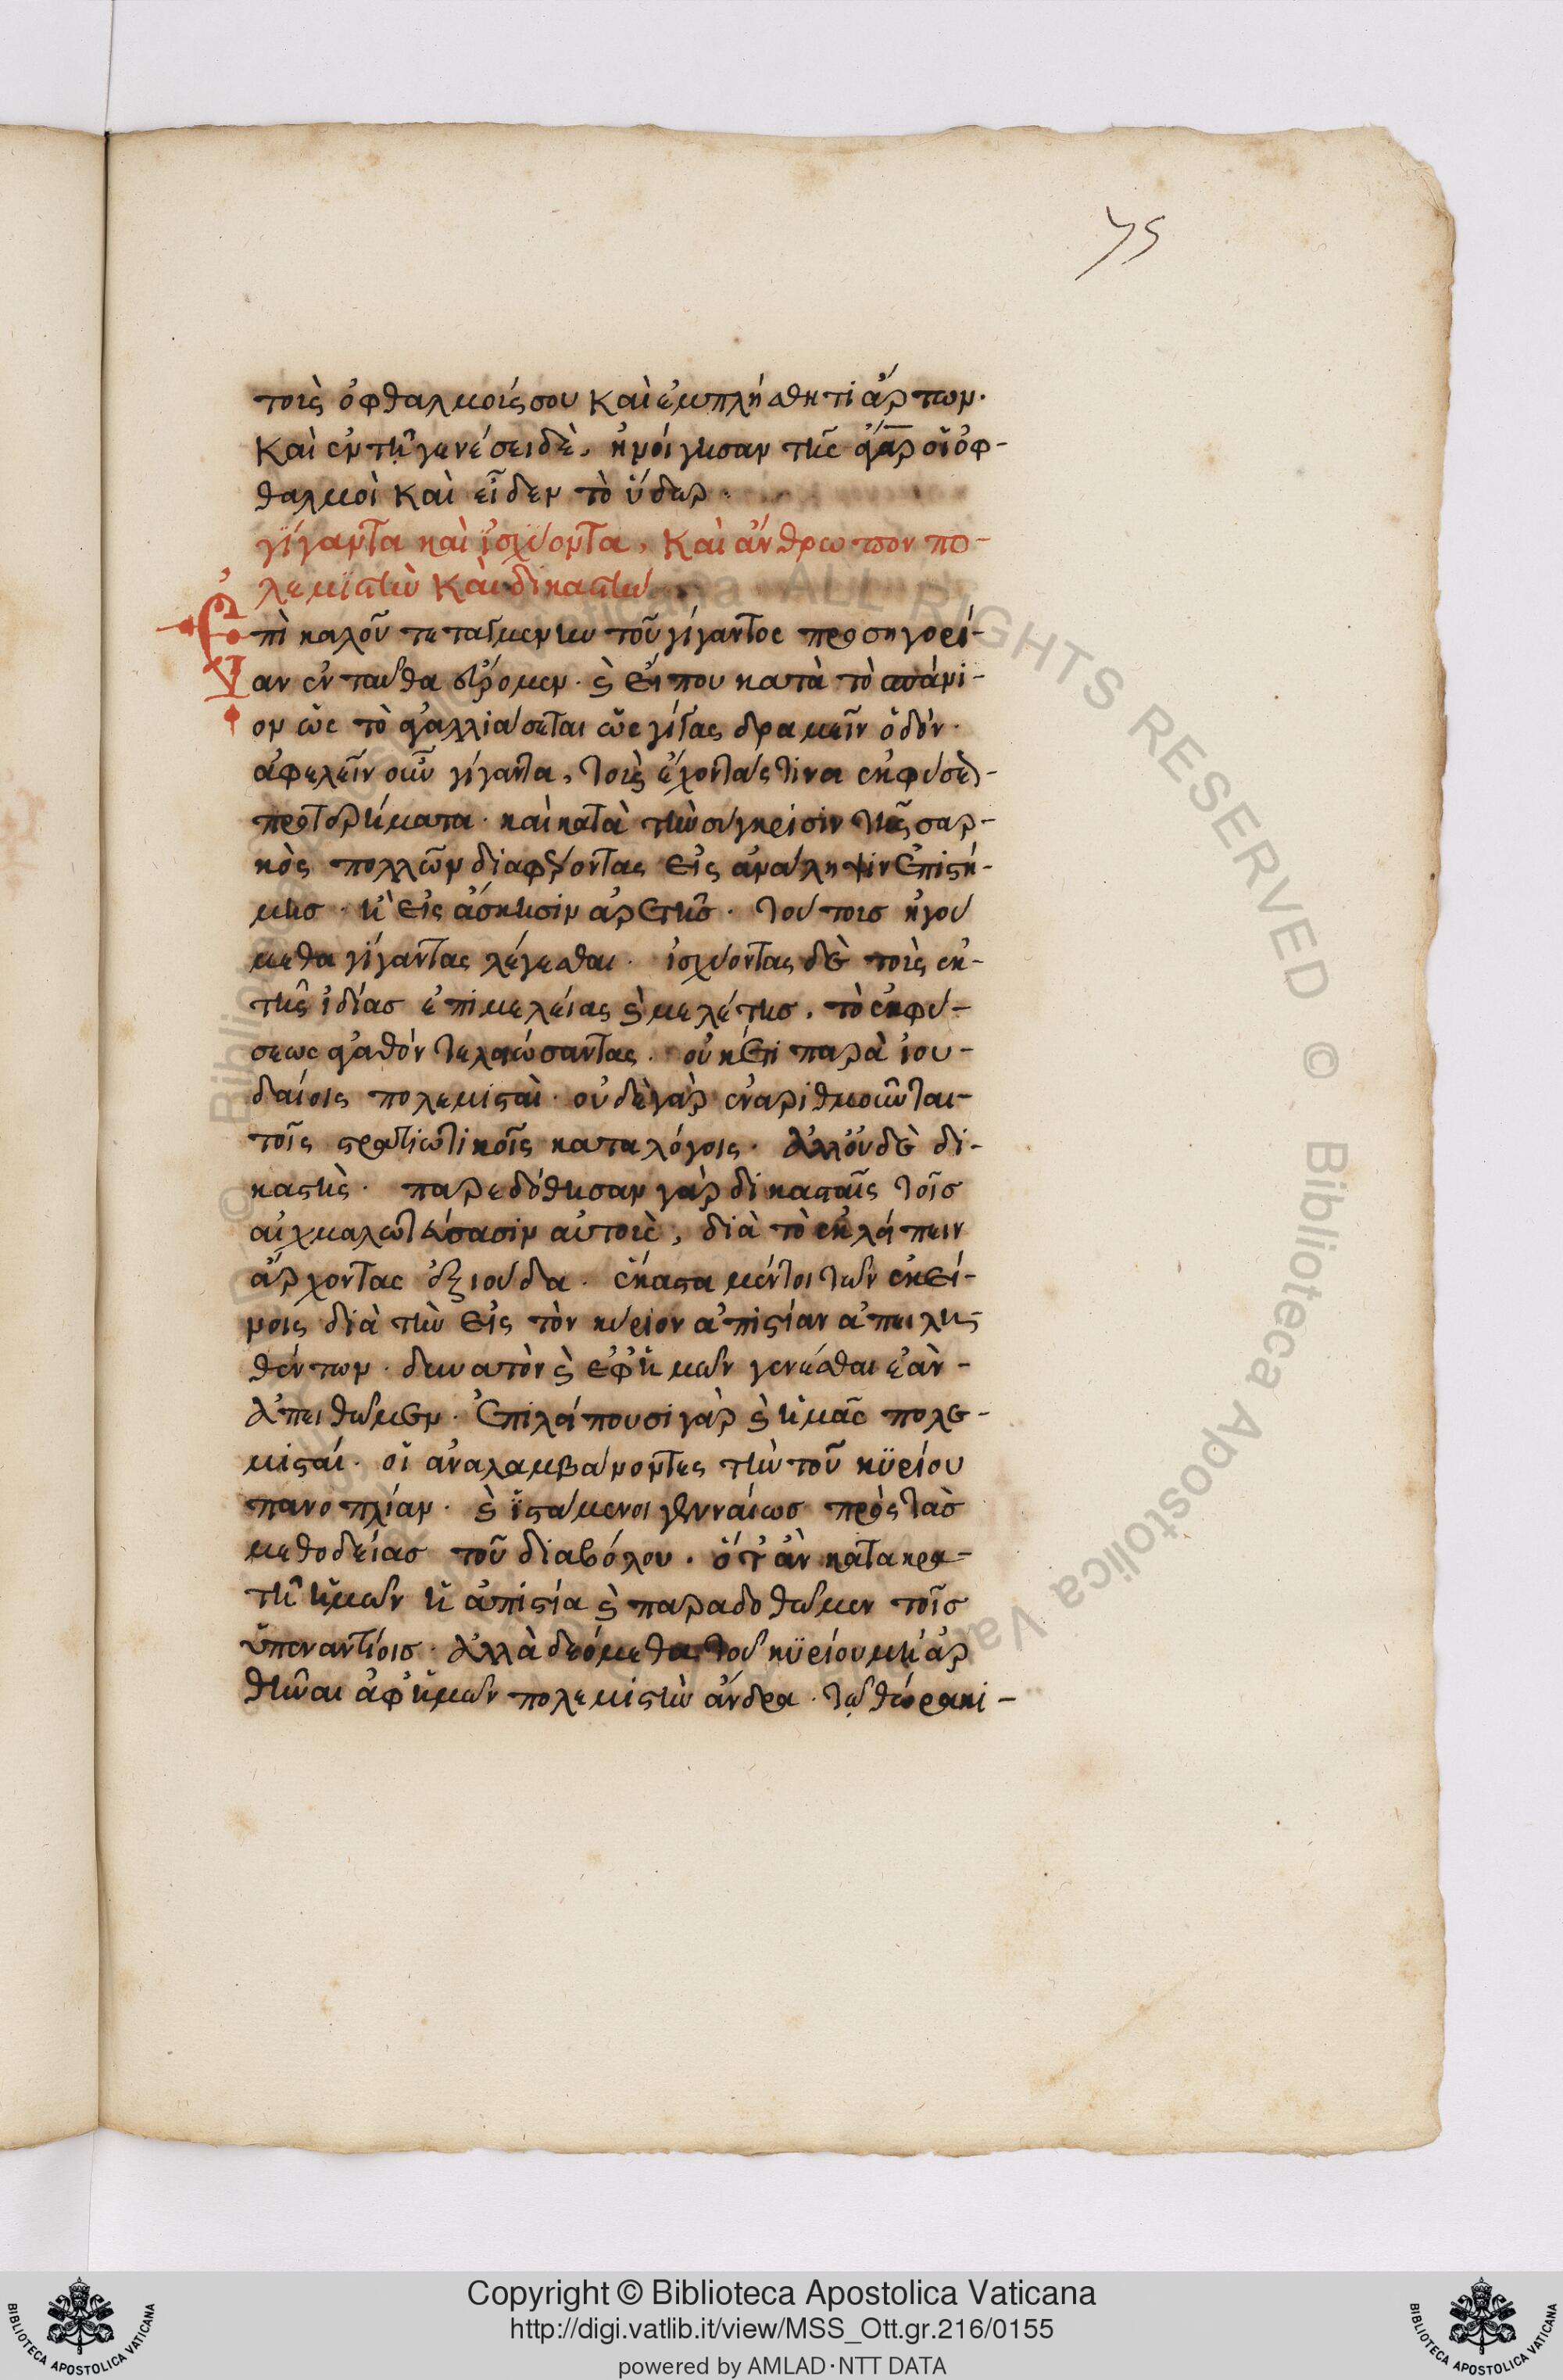 75
τοὺς ὀφθαλμούς σου καὶ ἐμπλήσθητι ἄρτων·
καὶ ἐν τῇ γενέσει δὲ, ἠνοίγησαν τῆς ἄγαρ οἱ ὀφ-
θαλμοὶ καὶ εἶδεν τὸ ὕδωρ·
γίγαντα καὶ ἰσχύοντα, καὶ ἄνθρωπον πο-
λεμϊστὴν καὶ δικαστήν
Ἐπὶ καλοῦ τεταγμένην τοῦ γίγαντος προσηγορί-
αν ἐνταῦθα εὕρομεν· καὶ εἴ που κατὰ τὸ σπάνι-
ον ὡς τὸ ἀγαλλιάσεται ὡς γίγας δραμεῖν ὁδόν·
ἀφελεῖν οὖν γίγαντα, τοὺς ἔχοντάς τινα ἐκ φύσεως
προτερήματα· καὶ κατὰ τὴν σύγκρισιν τῆς σαρ-
κὸς πολλῶν διαφέροντας εἰς ἀνάληψιν ἐπιστή-
μησ· ἢ εἰς ἄσκησιν ἀρετῆσ· τούτουσ ἡγού
μεθα γίγαντας λέγεσθαι· ἰσχύοντας δὲ τοὺς ἐκ-
τῆς ἰδίασ ἐπιμελείας καὶ μελέτησ, τὸ ἐκ φύ-
σεως ἀγαθὸν τελειώσαντας· οὐκέτι παρὰ ἰου-
δαίοις πολεμισταὶ· οὐδὲ γὰρ ἐναριθμοῦνται-
τοῖς στρατιωτικοῖς καταλόγοις· ἀλλ' οὐδὲ δι-
καστὴς· παρεδόθησαν γὰρ δικασταῖς τοῖσ
αἰχμαλωτεύσασιν αὐτοὺς, διὰ τὸ ἐκλείπειν
ἄρχοντας ἐξ ἰούδα· ἕκαστα μέντοι τῶν ἐκεί-
νοις διὰ τὴν εἰς τὸν κύριον ἀπιστίαν ἀπειλη-
θέντων· δυνατὸν καὶ ἐφ' ἡμῶν γενέσθαι ἐὰν-
ἀπειθῶμεν· ἐπιλείπουσι γὰρ καὶ ἡμᾶς πολε-
μισταί· οἱ ἀναλαμβάνοντες τὴν τοῦ κϋρίου
πανοπλίαν· καὶ ἱστάμενοι γενναίωσ πρὸς τὰσ
μεθοδείασ τοῦ διαβόλου· ὅτ' ἂν κατακρα-
τῇ ἡμῶν ἡ ἀπιστία καὶ παραδοθῶμεν τοῖσ
ὑπεναντίοισ· ἀλλὰ δεόμεθα τοῦ κϋρίου μὴ ἀρ
θῆναι ἀφ' ἡμῶν πολεμιστὴν ἄνδρα· τῷ θώρακι-
© Biblioteca Apostolica Vaticana ALL RIGHTS RESERVED © Biblioteca Apostolica Vaticana
Copyright © Biblioteca Apostolica Vaticana
http://digi.vatlib.it/view/MSS_Ott.gr.216/0155
powered by AMLAD·NTT DATA
BIBLIOTECA APOSTOLICA VATICANA
BIBLIOTECA APOSTOLICA VATICANA